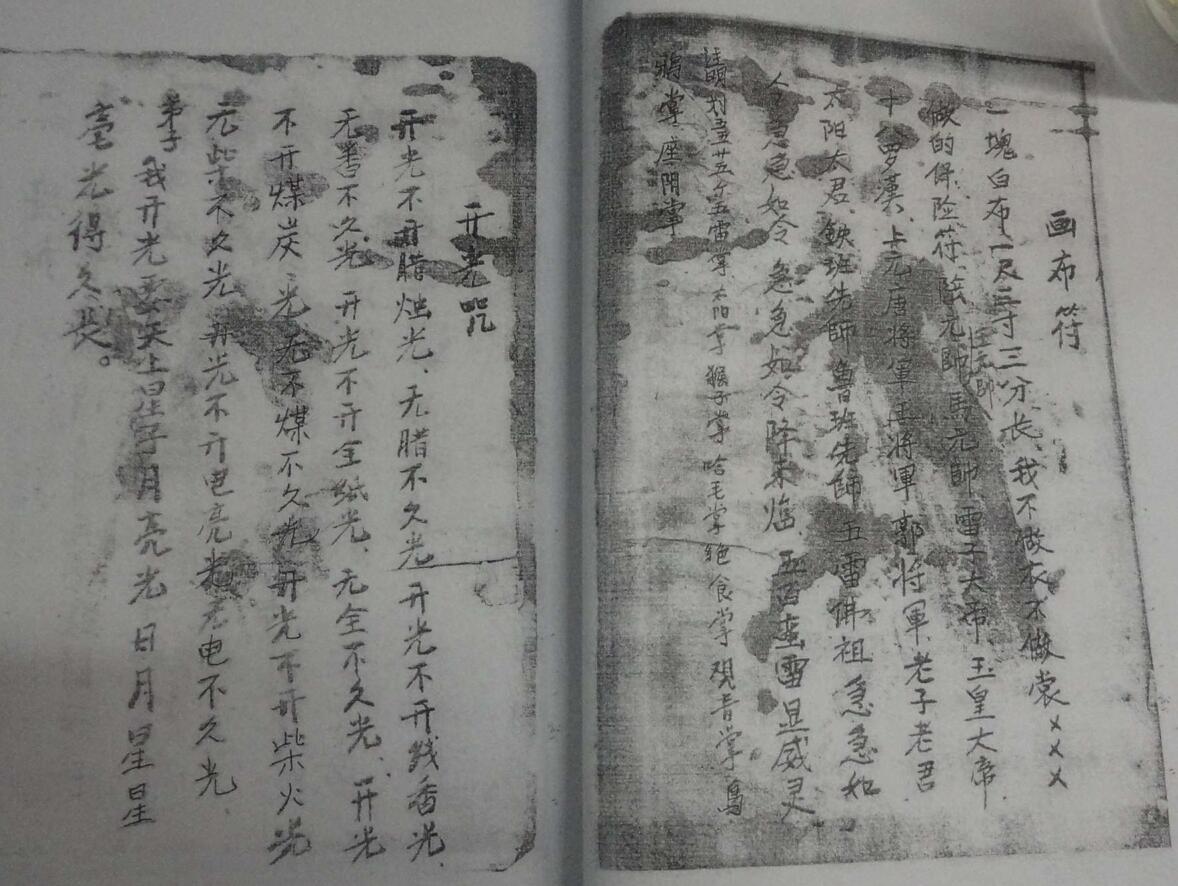 画布符
一塊白布一尺三寸三分长、我不做衣不做裳×××
做的保险符、陰元帥 馬元帥 雷子大帝、玉皇大帝、
天師
十罗漢、上元唐将軍 将軍 郭将軍、老子老君
太阳大君、鉄班先師 鲁班先師 五雷佛祖 急急如
令 急急如令 急急如令降来临 五百蛮雷显威灵
五雷掌 太阳掌 猴子掌 哈毛掌 绝食掌 观音掌
掌 座阴掌
开光咒
开光不开腊烛光、无腊不久光 开光不开线香光、
无香不久光 开光不开全纸光、无全不久光、开光
不开煤炭光 无不煤不久光 开光不开柴火光
元柴不久光 开光不开电亮光 无电不久光
弟子
我开光要 天上星子月亮光 日月星星
亮光得久长。